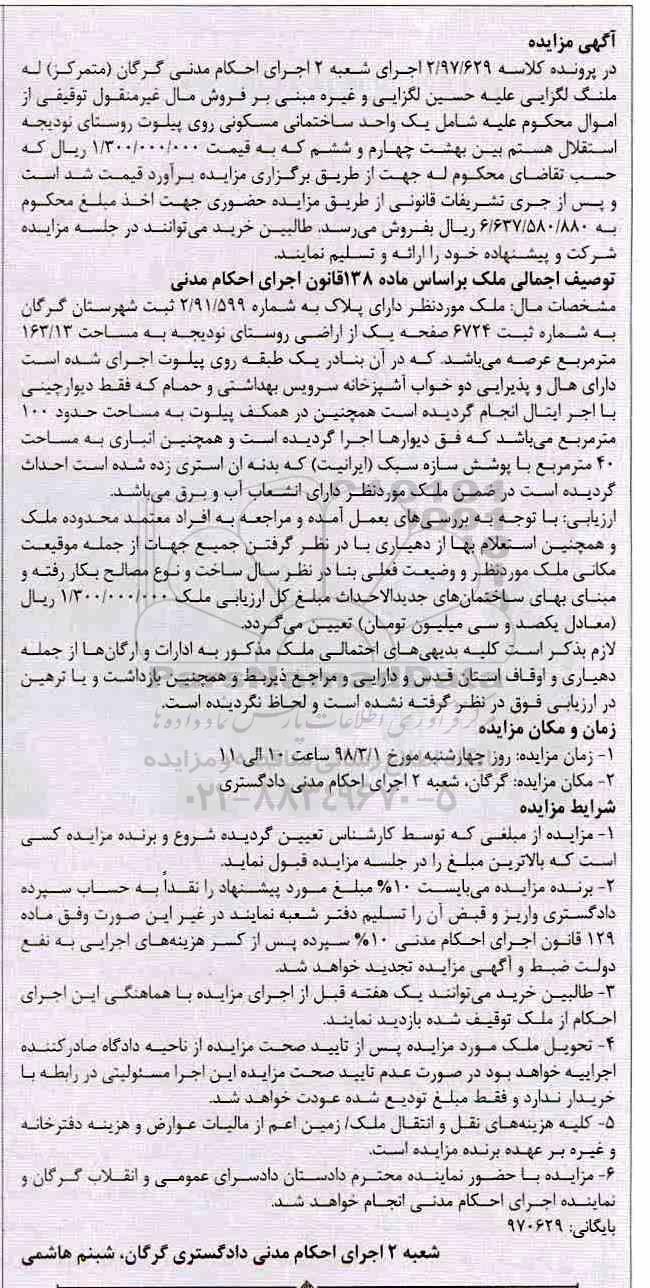 آگهی مزایده
در پرونده کلاسه ۲/۹۷/۶۲۹ اجرای شعبه ۲ اجرای احکام مدنی گرگان (متمرکز) له
ملنگ لگزایی علیه حسین لگزایی و غیره مبنی بر فروش مال غیرمنقول توقیفی از
اموال محکوم علیه شامل یک واحد ساختمانی مسکونی روی پیلوت روستای نودیجه
استقلال هستم بین بهشت چهارم و ششم که به قیمت ۱/۳۰۰/۰۰۰/۰۰۰ ریال که
حسب تقاضای محکوم له جهت از طریق برگزاری مزایده برآورد قیمت شد است
و پس از جری تشریفات قانونی از طریق مزایده حضوری جهت اخذ مبلغ محکوم
به ۶/۶۳۷/۵۸۰/۸۸۰ ریال بفروش می‌رسد. طالبین خرید می‌توانند در جلسه مزایده
شرکت و پیشنهاده خود را ارائه و تسلیم نمایند.
توصیف اجمالی ملک براساس ماده ۱۳۸قانون اجرای احکام مدنی
مشخصات مال: ملک موردنظر دارای پلاک به شماره ۲/۹۱/۵۹۹ ثبت شهرستان گرگان
به شماره ثبت ۶۷۲۴ صفحه یک از اراضی روستای نودیجه به مساحت ۱۶۳/۱۳
مترمربع عرصه می‌باشد. که در آن بنادر یک طبقه روی پیلوت اجرای شده است
دارای هال و پذیرایی دو خواب آشپزخانه سرویس بهداشتی و حمام که فقط دیوارچینی
با اجر ایتال انجام گردیده است همچنین در همکف پیلوت به مساحت حدود ۱۰۰
مترمربع می‌باشد که فق دیوارها اجرا گردیده است و همچنین انباری به مساحت
۴۰ مترمربع با پوشش سازه سبک (ایرانیت) که بدنه ان استری زده شده است احداث
گردیده است در ضمن ملک موردنظر دارای انشعاب آب و برق می‌باشد.
ارزیابی: با توجه به بررسی‌های بعمل آمده و مراجعه به افراد معتمد محدوده ملک
و همچنین استعلام بها از دهیاری با در نظر گرفتن جمیع جهات از جمله موقیعت
مکانی ملک موردنظر و وضیعت فعلی بنا در نظر سال ساخت و نوع مصالح بکار رفته و
مبنای بهای ساختمان‌های جدیدالاحداث مبلغ کل ارزیابی ملک ۱/۳۰۰/۰۰۰/۰۰۰ ریال
(معادل یکصد و سی میلیون تومان) تعیین می‌گردد.
لازم بذکر است کلیه بدیهی‌های احتمالی ملک مذکور به ادارات و ارگان‌ها از جمله
دهیاری و اوقاف استان قدس و دارایی و مراجع ذیربط و همچنین بازداشت و یا ترهین
در ارزیابی فوق در نظر گرفته نشده است و لحاظ نگردیده است.
زمان و مکان مزایده
۱- زمان مزایده: روز چهارشنبه مورخ ۹۸/۳/۱ ساعت ۱۰ الی ۱۱
۲- مکان مزایده: گرگان، شعبه ۲ اجرای احکام مدنی دادگستری
۰۲۱-۸۸۳۴۹۶۷۰-۵
شرایط مزایده
۱- مزایده از مبلغی که توسط کارشناس تعیین گردیده شروع و برنده مزایده کسی
است که بالاترین مبلغ را در جلسه مزایده قبول نماید.
۲- برنده مزایده می‌بایست ۱۰% مبلغ مورد پیشنهاد را نقداً به حساب سپرده
دادگستری واریز و قبض آن را تسلیم دفتر شعبه نمایند در غیر این صورت وفق ماده
۱۲۹ قانون اجرای احکام مدنی ۱۰% سپرده پس از کسر هزینه‌های اجرایی به نفع
دولت ضبط و آگهی مزایده تجدید خواهد شد.
۳- طالبین خرید می‌توانند یک هفته قبل از اجرای مزایده با هماهنگی این اجرای
احکام از ملک توقیف شده بازدید نمایند.
۴- تحویل ملک مورد مزایده پس از تایید صحت مزایده از ناحیه دادگاه صادرکننده
اجراییه خواهد بود در صورت عدم تایید صحت مزایده این اجرا مسئولیتی در رابطه با
خریدار ندارد و فقط مبلغ تودیع شده عودت خواهد شد.
۵- کلیه هزینه‌های نقل و انتقال ملک/ زمین اعم از مالیات عوارض و هزینه دفترخانه
و غیره بر عهده برنده مزایده است.
۶- مزایده با حضور نماینده محترم دادستان دادسرای عمومی و انقلاب گرگان و
نماینده اجرای احکام مدنی انجام خواهد شد.
بایگانی: ۹۷۰۶۲۹
شعبه ۲ اجرای احکام مدنی دادگستری گرگان، شبنم هاشمی